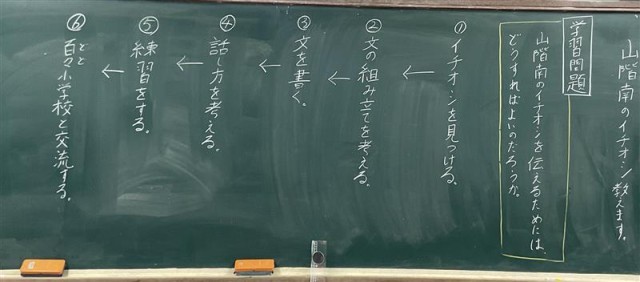 山階南のイチオシ教えます。
学習問題
山階南のイチオシを伝えるためには、
どうすればよいのだろうか。
①イチオシを見つける。
↓
②文の組み立てを考える。
↓
③文を書く。
↓
④話し方を考える。
↓
⑤練習をする。
↓
⑥百々小学校と交流する。
どど